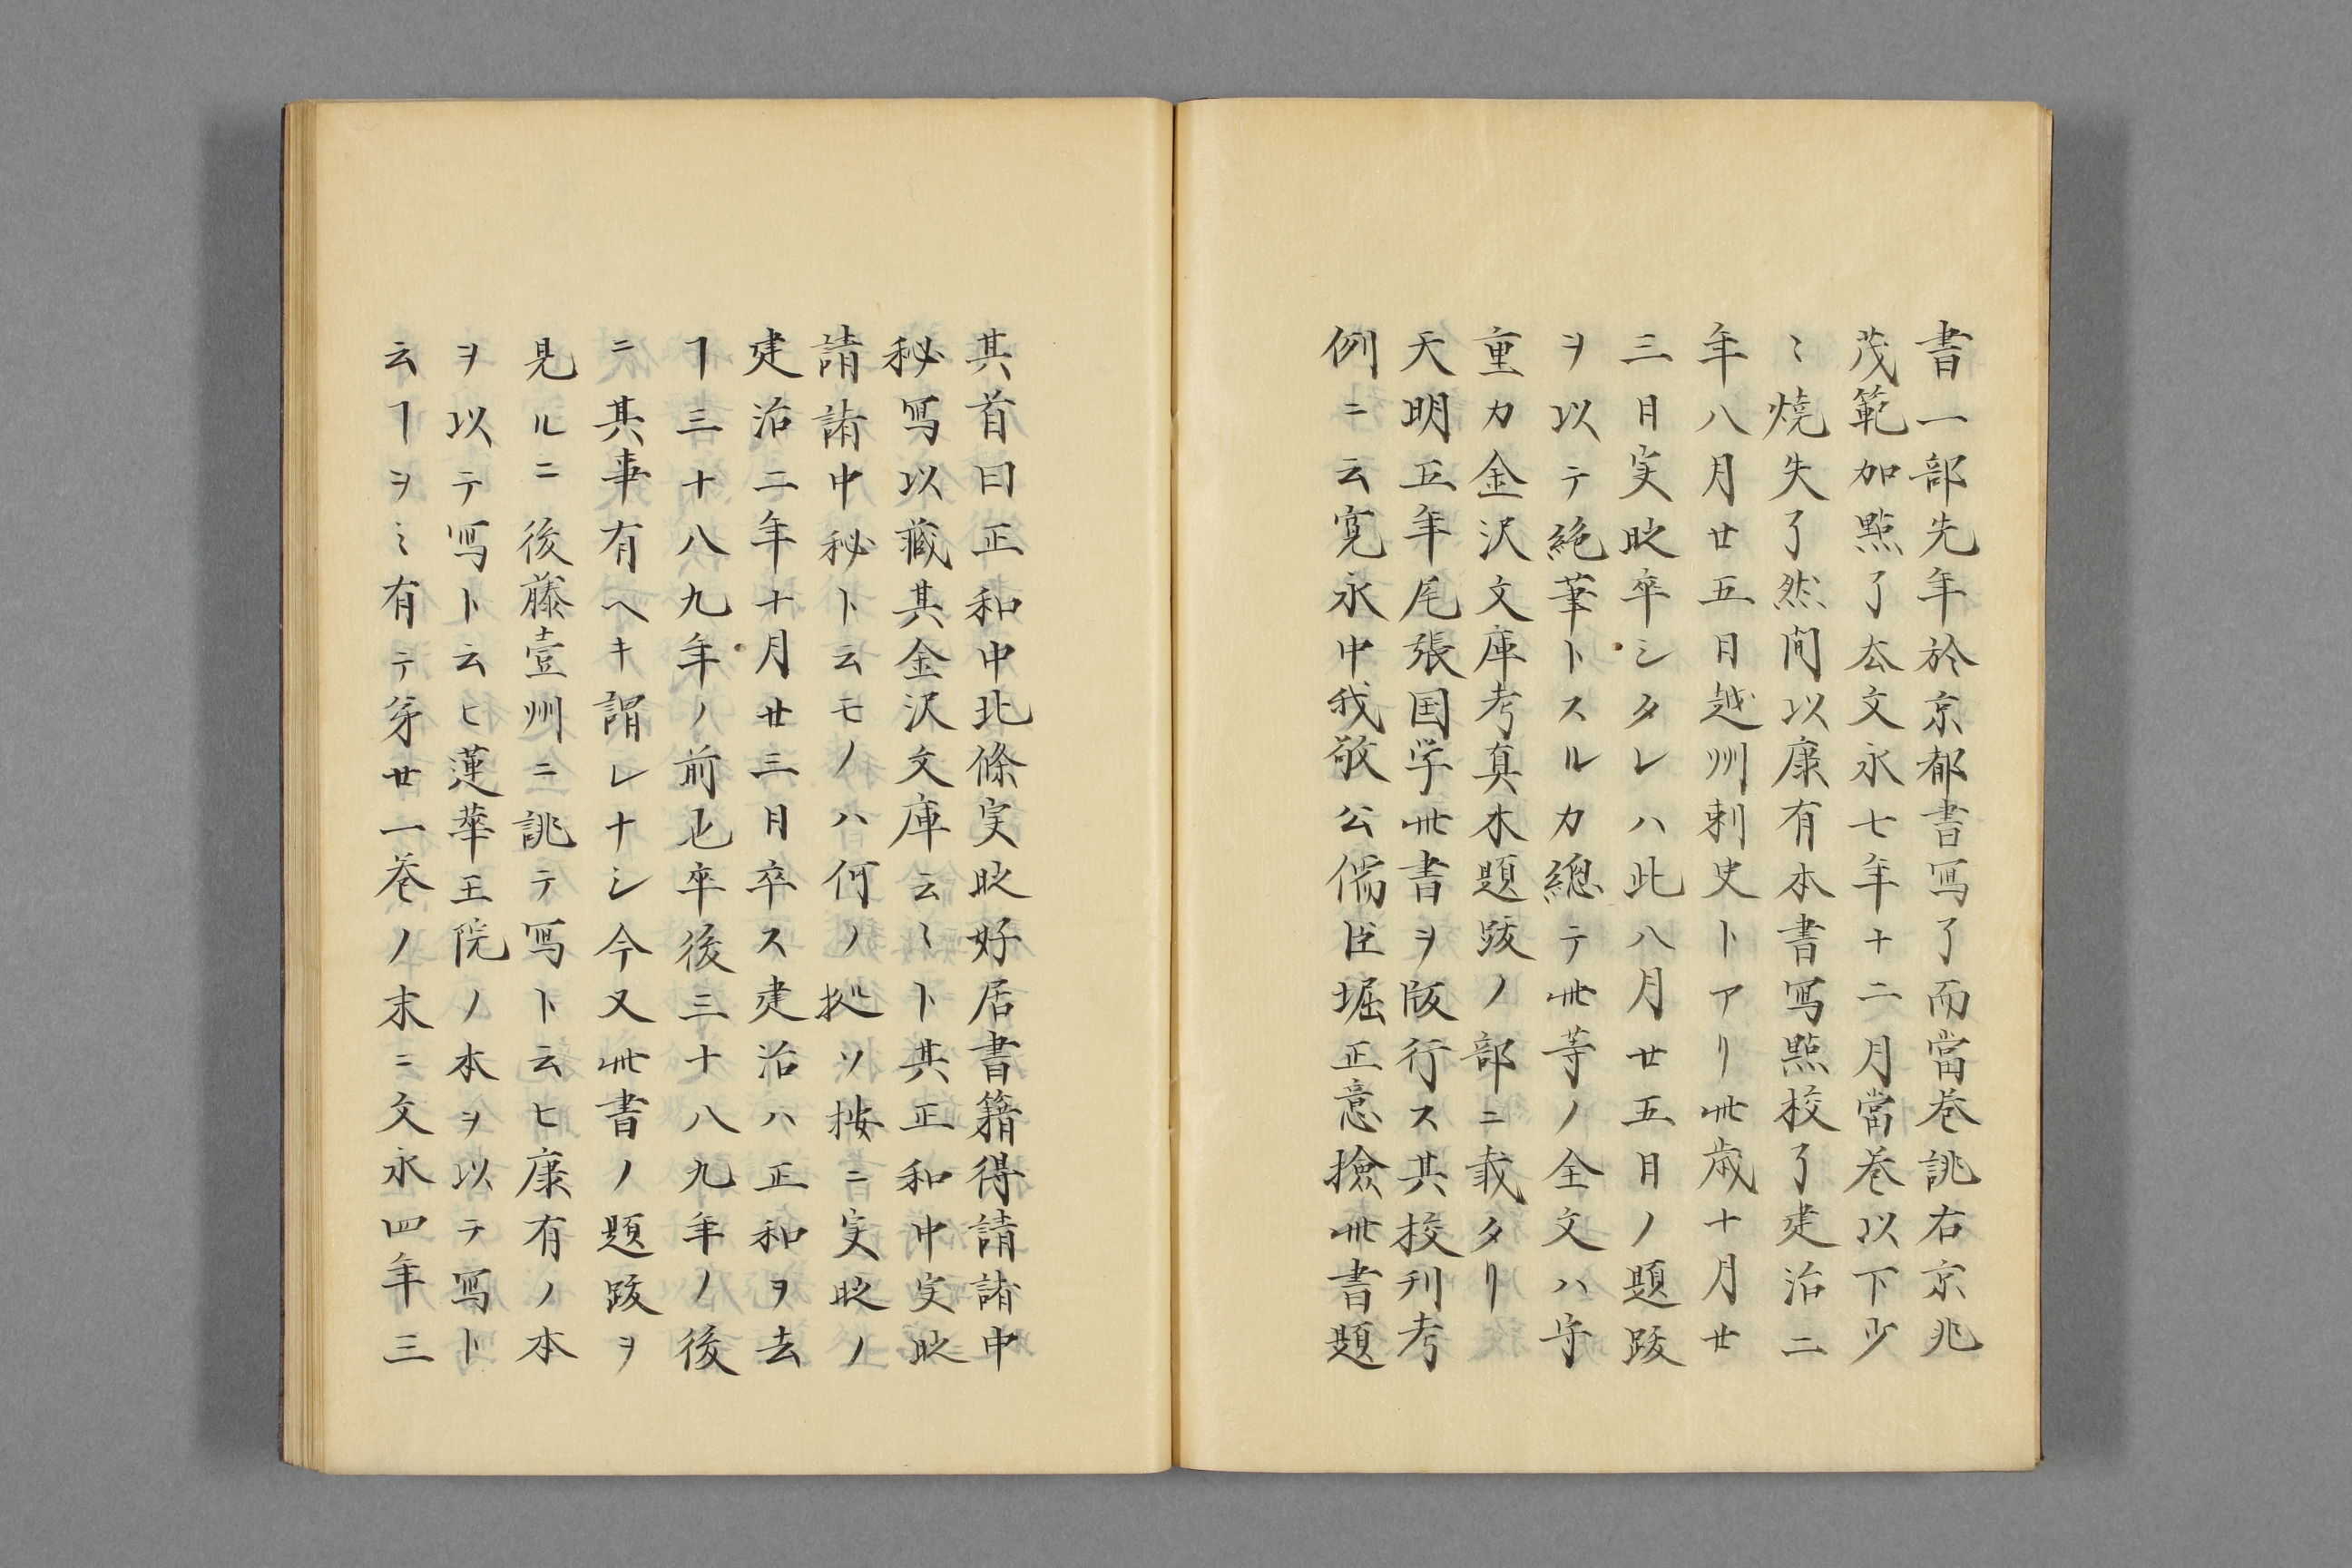 書一部先年於京都書写了而當巻誂右京兆
茂範加㸃了厺文永七年十二月當巻以下少
〻焼失了然間以康有本書写㸃校了建治二
年八月廿五日越州刺史トアリ丗歳十月廿
三日実时卒シタレハ此八月廿五日ノ題跋
ヲ以テ絶筆トスルカ總テ丗等ノ全文ハ守
重カ金沢文庫考真本題跋ノ部ニ載タリ
天明五年尾張国学丗書ヲ版行ス其校刊考
例ニ云寛永中我敬公儒臣堀正意撿丗書題
其首曰正和中北條実时好居書籍得請諸中
秘写以蔵其金沢文庫云〻ト其正和中実时
請諸中秘ト云モノハ何ノ拠ソ按ニ実时ノ
建治二年十月廿三日卒ス建治ハ正和ヲ去
ヿ三十八九年ノ前也卒後三十八九年ノ後
ニ其事有ヘキ謂レナシ今又丗書ノ題跋ヲ
見ルニ後藤壹州ニ誂テ写ト云ヒ康有ノ本
ヲ以テ写ト云ヒ蓮華王院ノ本ヲ以テ写ト
云ヿヲ〻有テ㐧廿一巻ノ末ニ文永四年三